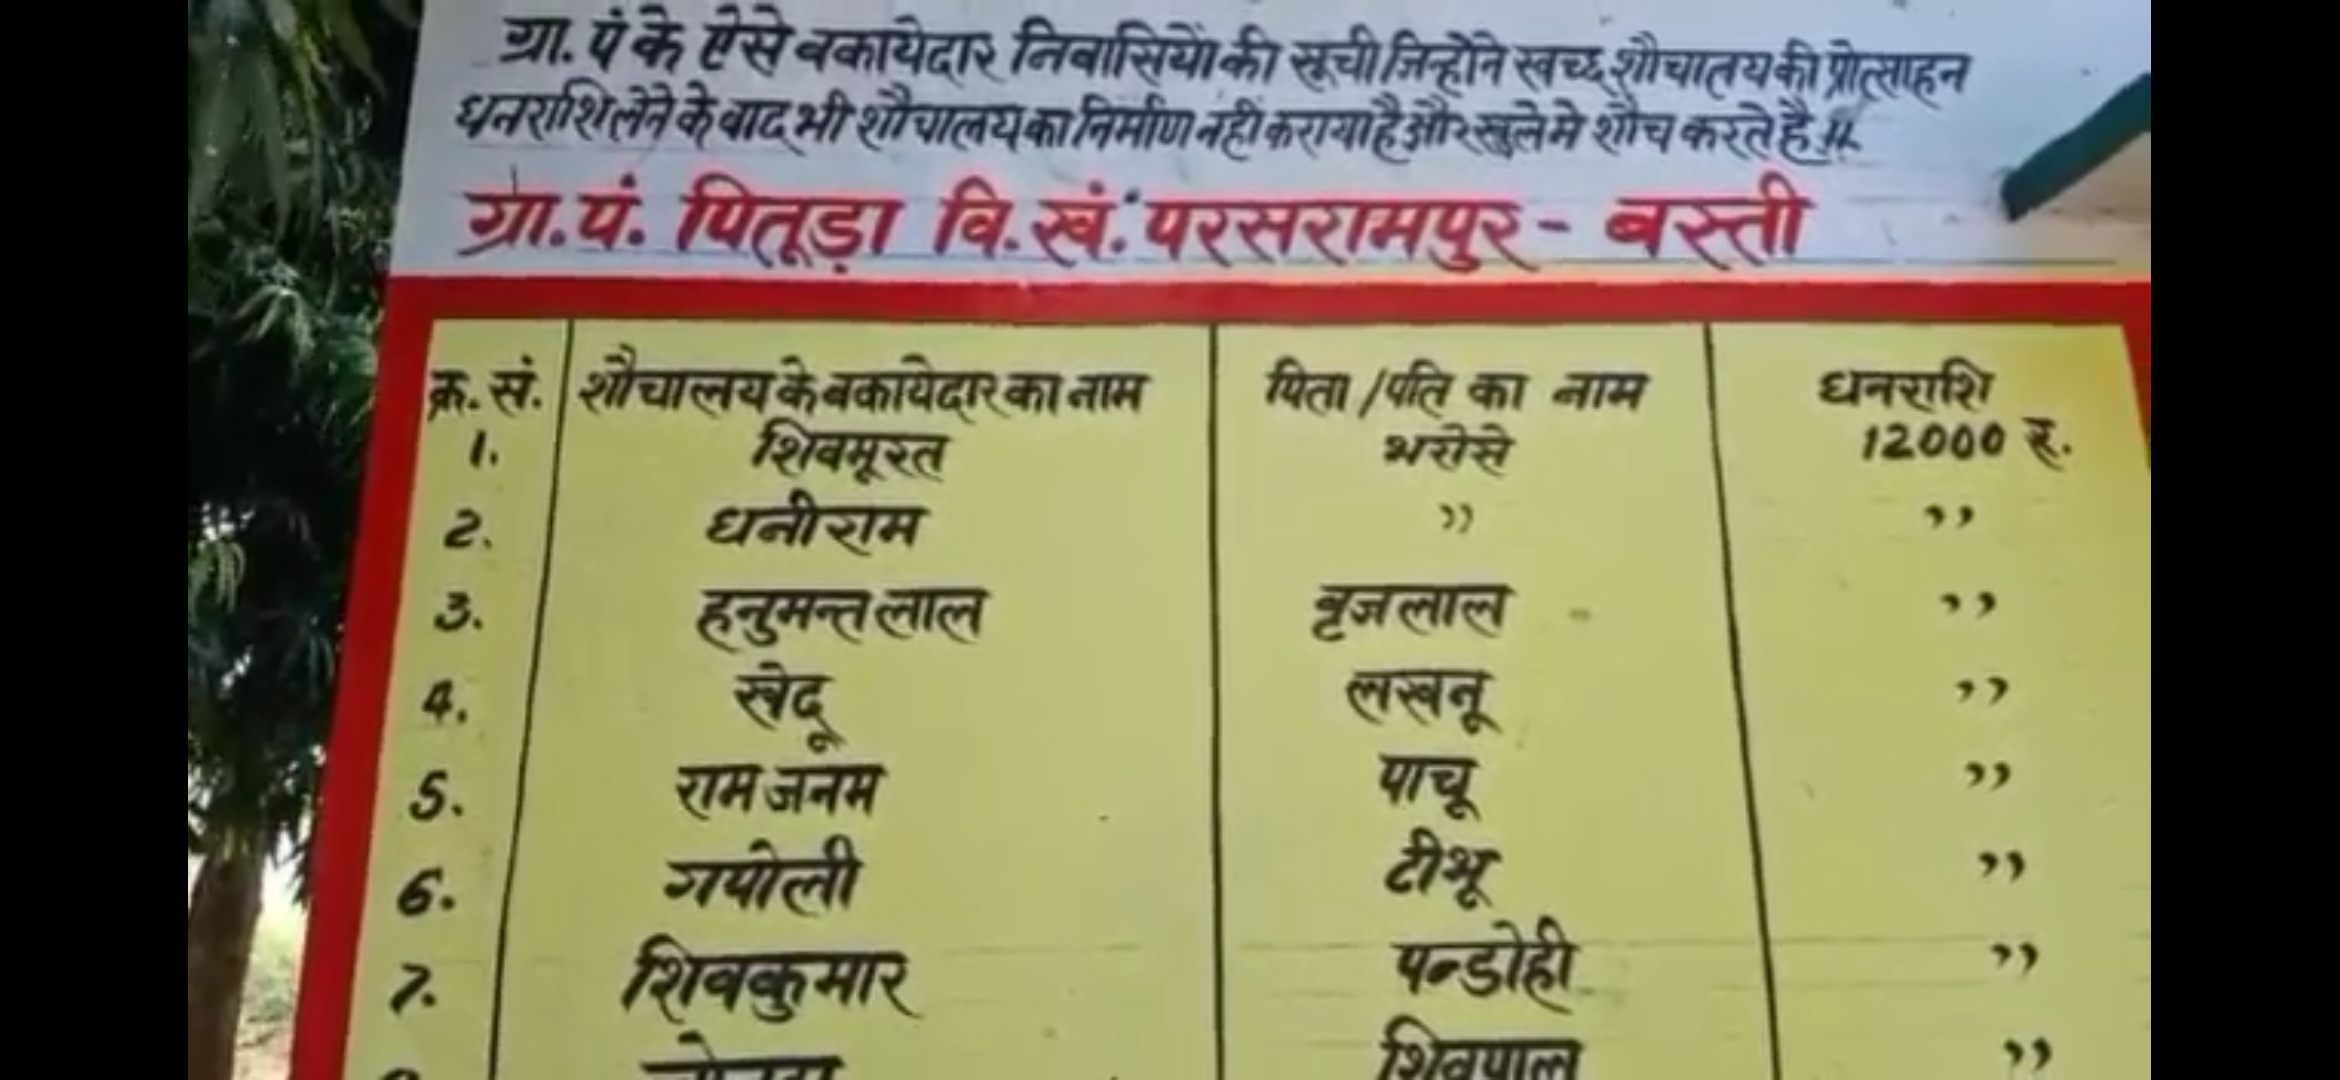 ग्रा. पं के ऐसे बकायेदार निवासियों की सूची जिन्होंने स्वच्छ शौचालय की प्रोत्साहन
धनराशि लेने के बाद भी शौचालय का निर्माण नहीं कराया है और खुले मे शौच करते है।।
ग्रा. पं. पितूड़ा वि. खं. परसरामपुर - बस्ती
क्र. सं. शौचालय के बकायेदार का नाम पिता / पति का नाम धनराशि
1. शिवमूरत भरोसे 12000 रु.
2. धनीराम ,, ,,
3. हनुमन्त लाल बृजलाल ,,
4. खेदू लखनू ,,
5. राम जनम पाचू ,,
6. गपोली टीभू ,,
7. शिवकुमार पन्डोही ,,
शिवपाल ,,